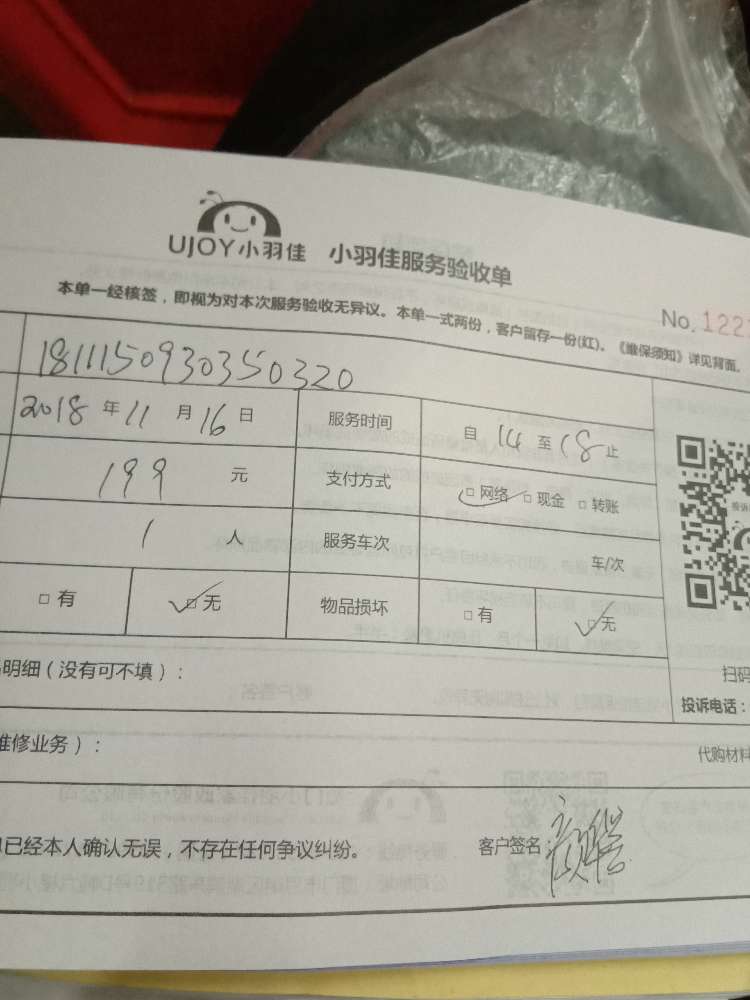 UJOY小羽佳 小羽佳服务验收单
本单一经核签，即视为对本次服务验收无异议。本单一式两份，客户留存一份(红)。《维保须知》详见背面。
No. 122
181115093035​0320
2018 年 11 月 16 日 服务时间 自 14 至 18 止
199 元 支付方式 □ 网络 □ 现金 □ 转账
1 人 服务车次 车/次
□ 有 □ 无 物品损坏 □ 有 □ 无
明细（没有可不填）：
扫码
投诉电话：
维修业务）：
代购材料
已经本人确认无误，不存在任何争议纠纷。 客户签名：